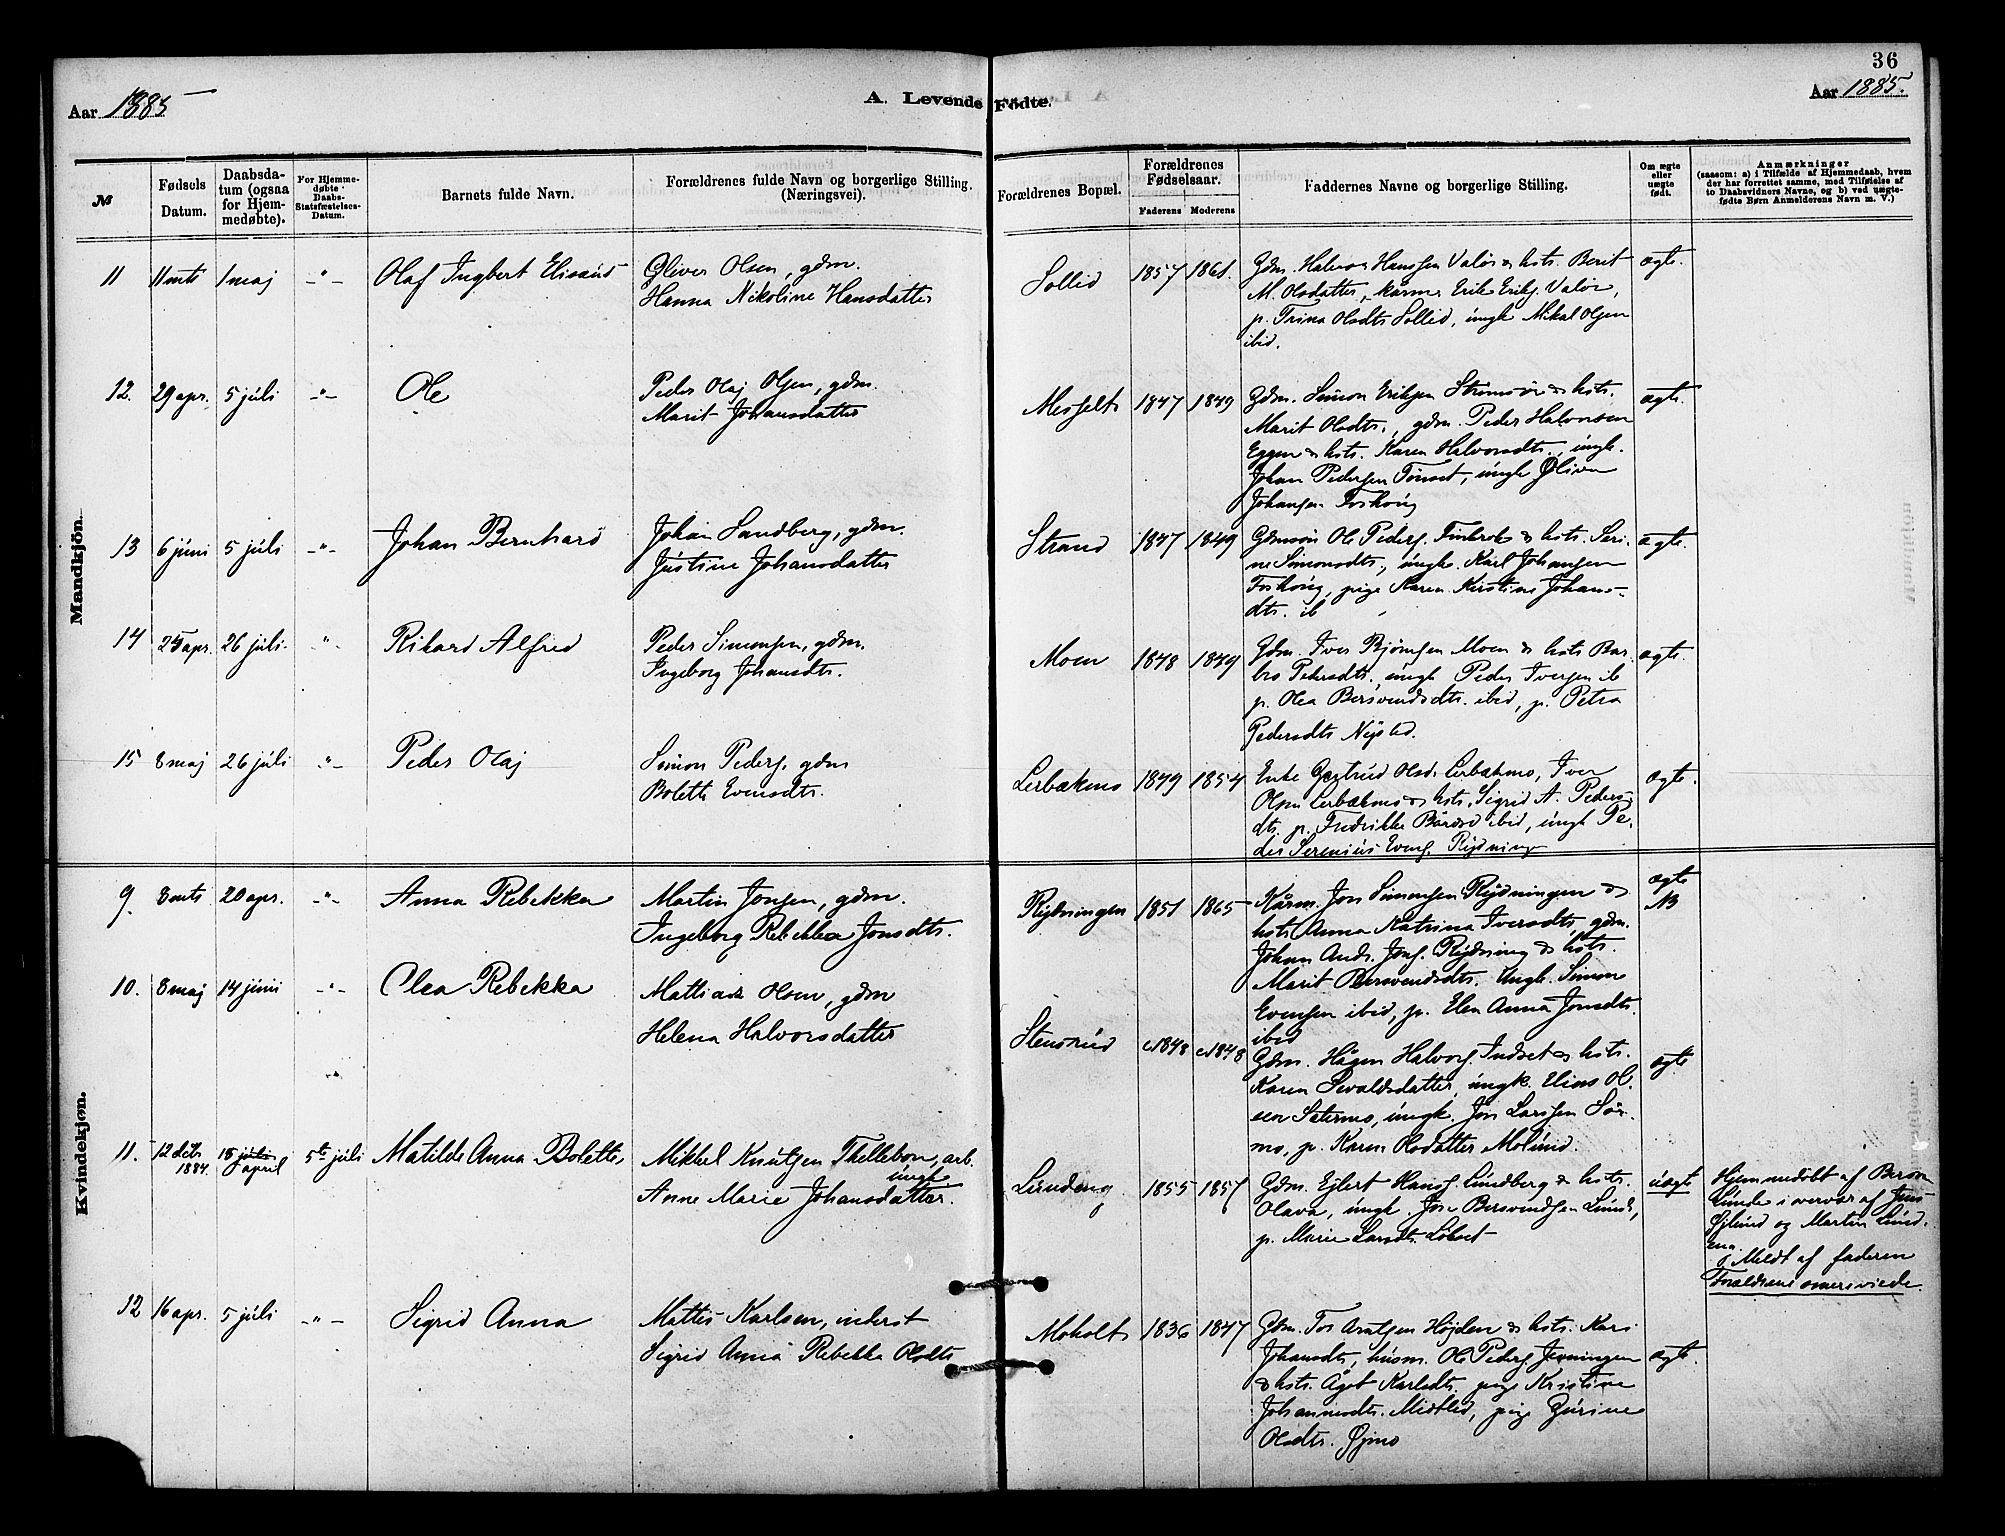 36
Aar 1885
A. Levende Fødte.
Aar 1885.
№
Fødsels Datum.
Daabsdatum (ogsaa for Hjemmedøbte).
For Hjemmedøbte Daabs-Statsfæstelses-Datum.
Barnets fulde Navn.
Forældrenes fulde Navn og borgerlige Stilling. (Næringsvei).
Forældrenes Bopæl.
Forældrenes Fødselsaar.
Faderens Moderens
Faddernes Navne og borgerlige Stilling.
Om ægte eller uægte født.
Anmærkninger
(saasom: a) i Tilfælde af Hjemmedaab, hvem
der har forrettet samme, med Tilføielse af
to Daabsvidners Navne, og b) ved uægte-
fødte Børn Anmelderens Navn m. V.)
Mandkjön.
11 11 mts 1 maj -"- Olaf Ingbert Elisæus
Oliver Olsen, gdm.
Hanna Nikoline Hansdatter
Sollid 1857 1861.
Gdm. Halvor Hansen Valør & hst. Berit
M. Olsdatter, kårm. Erik Eriks. Valør,
p. Trina Olsdts Sollid, ungk Mikal Olsen
ibid.
ægte.
12. 29 apr. 5 júli -"- Ole
Peder Olaj Olsen, gdm.
Marit Johansdatter
Messelt 1847 1849
Gdm. Simon Eriksen Strømsør & hst.
Marit Olsdtr., gdm. Peder Halvorsen
Eggen & hst. Karen Halvorsdtr., ungk.
Johan Pedersen Tønset, ungk Oliver
Johansen Foskoug
ægte.
13 6 júni 5 júli -"- Johan Bernhard
Johan Sandberg, gdm.
Justine Johansdatter
Strand 1847 1849
Ole Peders. & hst. Seri-
ne Simonsdtr, ungk. Karl Johansen
Foskoug, pige Karen Kirstine Johans-
dtr. ib
ægte.
14 25 apr. 26 júli. -"- Rikard Alfred
Peder Simonsen, gdm.
Ingeborg Johansdtr.
Moen 1848 1849
Gdm. Iver Bjørnsen Moen & hst Bar-
bro Pedersdtr., ungk Peder Iversen ib
p. Olea Bersvendsdtr. ibid, p. Petra
Pedersdtr Nysted.
ægte.
15 8 maj 26 júli -"- Peder Olaj
Simon Peders, gdm
Bolette Evensdtr.
Lerbækmo 1849 1854
Enke Gjertrud Olsd. Lerbækmo, Iver
Olsen Lerbækmo & hst. Sigrid A. Peders-
dtr. p. Fredrikke Bårdsd ibid, ungk Pe-
der Serenius Evens. Rydning
ægte.
Kvindekjøn.
9. 8 mts 20 apr. -"- Anna Rebekka
Martin Jonsen, gdm.
Ingeborg Rebekka Jonsdtr.
Rydningen 1851 1865
Kårm. Jon Simonsen Rydningen &
hst. Anna Katrina Iversdtr, gdm.
Johan Andr. Jons. Rydning & hst.
Marit Bersvendsdtr. Ungk. Simon
Evensen ibid, p. Elen Anna Jonsdtr.
ibid
ægte
NB
10. 8 maj 14 júni -"- Olea Rebekka
Mattias Olsen, gdm
Helena Halvorsdatter
Stensrud c.1848 c.1848
Gdm. Hågen Halvors. Indset & hst.
Karen Sevaldsdatter, ungk. Elias Ol-
sen Sætermo, ungk. Jon Larssen Sør-
mo, p. Karen Olsdatter Molund.
ægte
11. 12 dcbr 1884. april 5te júli Matilde Anna Bolette
Mikkel Knutsen Thellebon, arb.
ungk.
Anne Marie Johansdatter.
Lundeng 1855 1857
Gdm. Ejlert Hans. Lundberg & hst.
Olava, ungk. Jon Bersvendsen Lund,
p. Marie Larsdtr. Løbset
uægte
Hjemmedøbt af Beron
Lunde i overvær af Jens
og Martin Lund-
eng. Meldt af faderen
Forældrene omersviede.
12 16 apr. 5 júli -"- Sigrid Anna
Mattis Karlsen, inderst
Sigrid Anna Rebekka Olsdtr
Moholt 1836 1847
Gdm. Tor Arntsen Højden & hst. Kari
Johansdtr, husm. Ole Peders.
& hst. Åget Karlsdtr. pige Kristine
Johannesdtr. Midtlid, pige Gurine
Olsdtr. Øjmo
ægte.